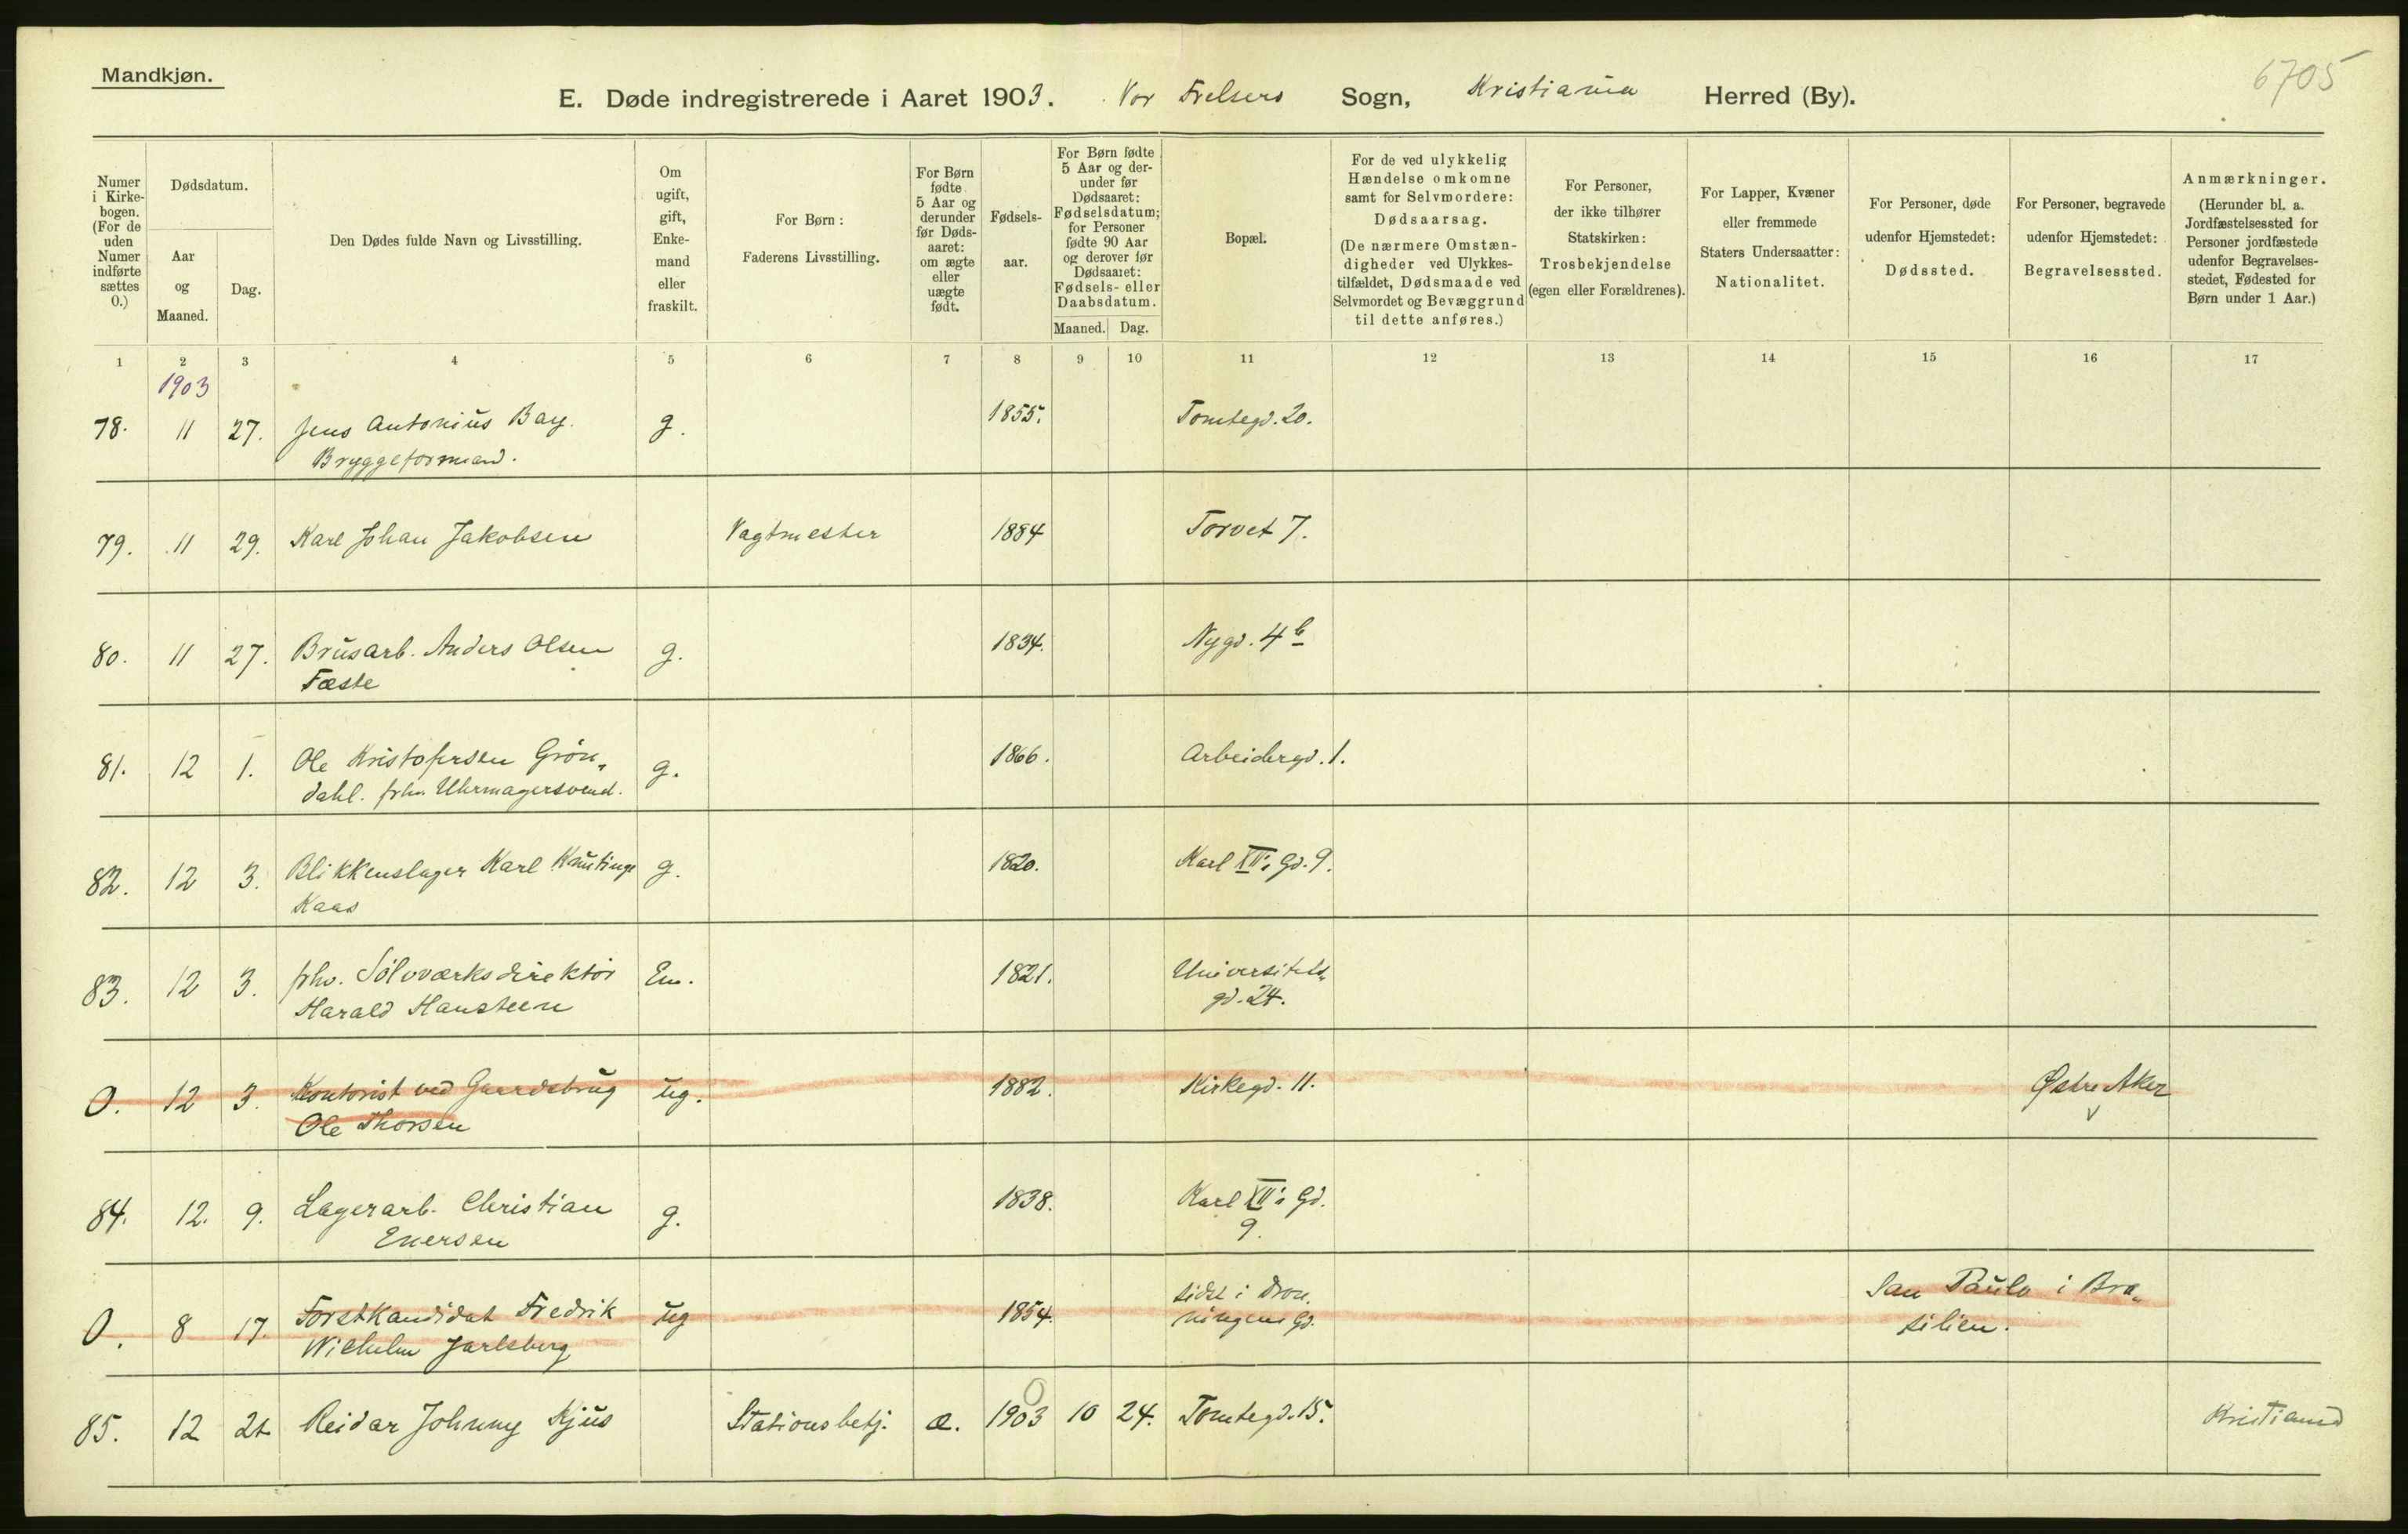 Mandkjøn.
6705
E. Døde indregistrerede i Aaret 1903. Vor Frelsers Sogn, Kristiania Herred (By).
Numer i Kirkebogen. (For de uden Numer indførte sættes O.)
Dødsdatum.
Aar og Maaned.
Dag.
Den Dødes fulde Navn og Livsstilling.
Om ugift, gift, Enkemand eller fraskilt.
For Børn: Faderens Livsstilling.
For Børn fødte 5 Aar og derunder før Dødsaaret: om ægte eller uægte født.
Fødselsaar.
For Børn fødte 5 Aar og derunder før Dødsaaret: Fødselsdatum; for Personer fødte 90 Aar og derover før Dødsaaret: Fødsels- eller Daabsdatum.
Maaned. Dag.
Bopæl.
For de ved ulykkelig Hændelse omkomne samt for Selvmordere: Dødsaarsag. (De nærmere Omstændigheder ved Ulykkestilfældet, Dødsmaade ved Selvmordet og Bevæggrund til dette anføres.)
For Personer, der ikke tilhører Statskirken: Trosbekjendelse (egen eller Forældrenes).
For Lapper, Kvæner eller fremmede Staters Undersaatter: Nationalitet.
For Personer, døde udenfor Hjemstedet: Dødssted.
For Personer, begravede udenfor Hjemstedet: Begravelsessted.
Anmærkninger. (Herunder bl. a. Jordfæstelsessted for Personer jordfæstede udenfor Begravelsesstedet, Fødested for Børn under 1 Aar.)
1 2 3 4 5 6 7 8 9 10 11 12 13 14 15 16 17
1903
78. 11 27. Jens Antonius Bay. g. 1855. Tomtegd. 20.
Bryggeformand.
79. 11 29. Karl Johan Jakobsen Vagtmester 1884 Torvet 7.
80. 11 27. Brusarb. Anders Olsen g. 1834. Nygd. 4b
Fæste
81. 12 1. Ole Kristofersen Grön„ g. 1866. Arbeidergd. 1.
dahl. fhv. Uhrmagersvend.
82. 12 3. Blikkenslager Karl g. 1820. Karl XII's Gd. 9.
Kaas
83. 12 3. fhv. Sölvværksdirektör Em. 1821. Universitets„
Harald Hansteen gd. 24.
O. 12 3. Kontorist ved Gaardsbrug ug. 1882. Kirkegd. 11. Østre Aker
Ole Thorsen
84. 12. 9. Lagerarb. Christian g. 1838. Karl XII's Gd.
Enersen 9.
O. 8 17. Forstkandidat Fredrik ug 1854. sidst i Dron„ San Paulo i Bra„
Wilhelm Jarlsberg ningens Gd. silien.
85. 12 21 Reidar Johnny Kjus Stationsbetj. æ. 1903 10 24. Tomtegd. 15. Kristiania